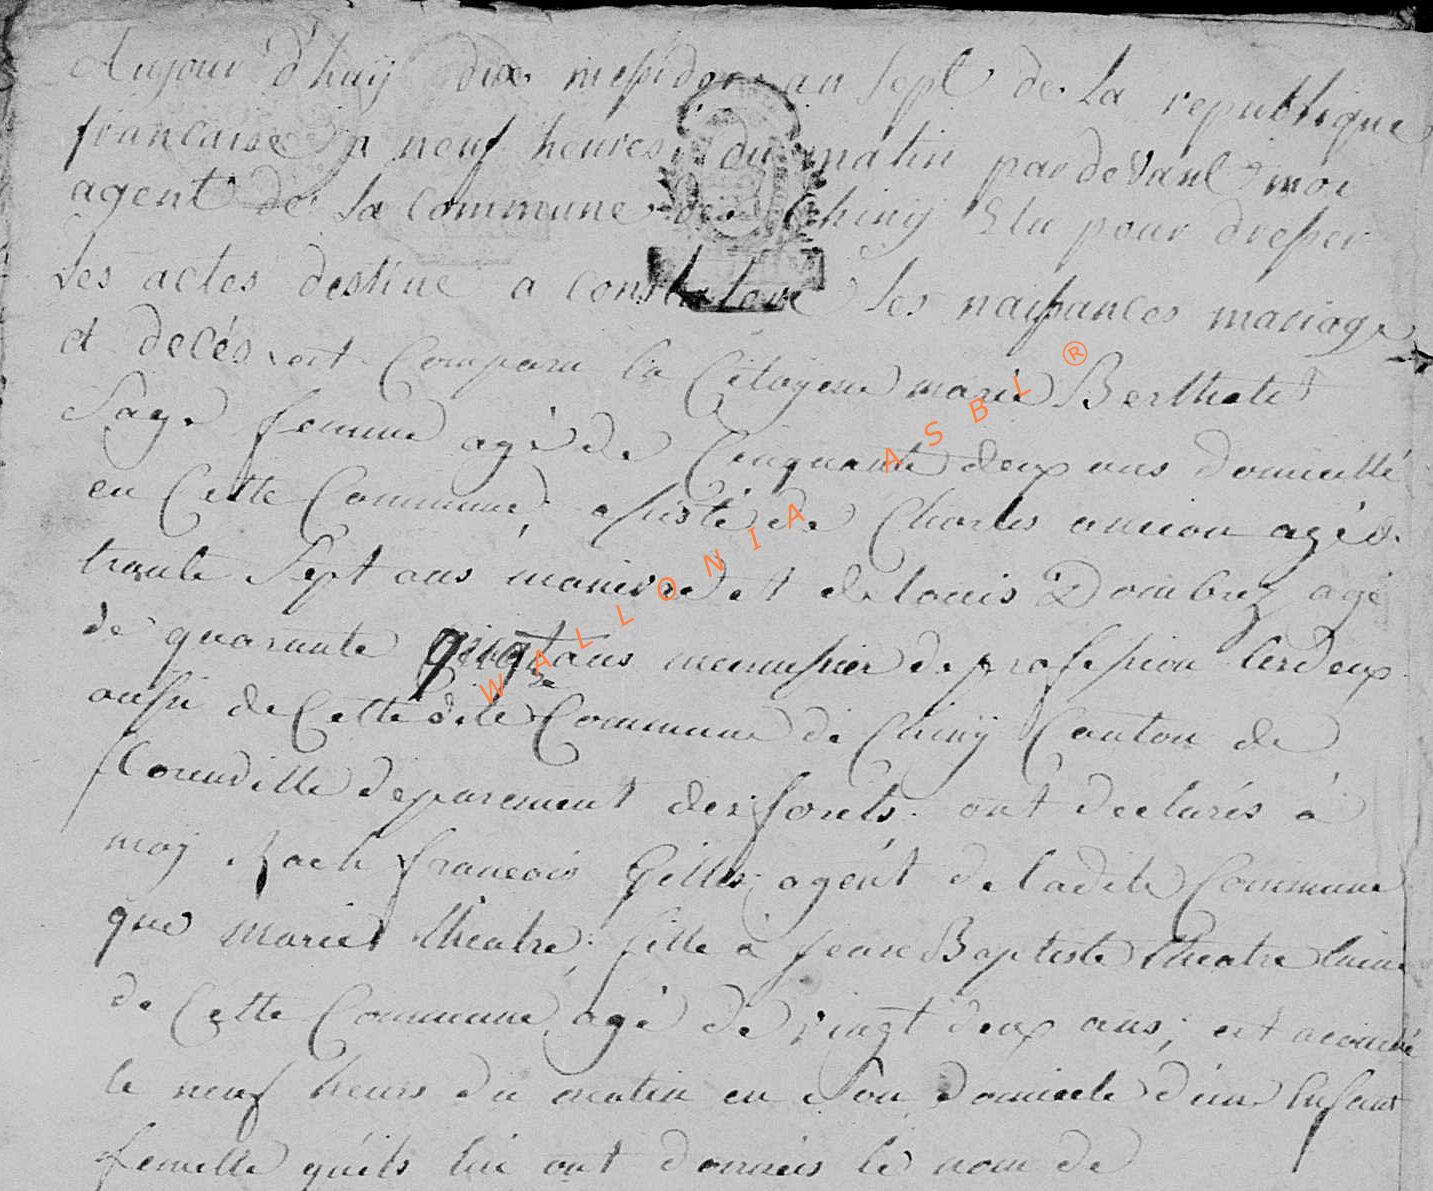 Aujour d'huÿ dix messidor an sept de la republique
francaise a neuf heures du matin pardevant moi
agent de la commune de Chinÿ Elu pour dresser
les actes destine a constater les naissances mariage
et decés est Comparu la Citoyene marie Bertholet
Sage femme agé de Cinquante deux ans Domicillé
en Cette Commune, assisté de Charles ancion agé de
trante Sept ans manuvre et de louis Dombrez agé
de quarante cinq ans menussier de profession lesdeux
aussi de Cette dite Commune de Chinÿ Canton de
florenville departement des forêts, ont declarés à
moÿ Roch francois Gilles agent de ladite Commune
que marie theatre, fille a jean Baptiste theatre
de Cette Commune agé de vingt deux ans, est acouché
le neuf heurs du matin en Son Domicile d'un Enfant
femelle qu'ils lui ont donnés le nom de
WALLONIA ASBL ®